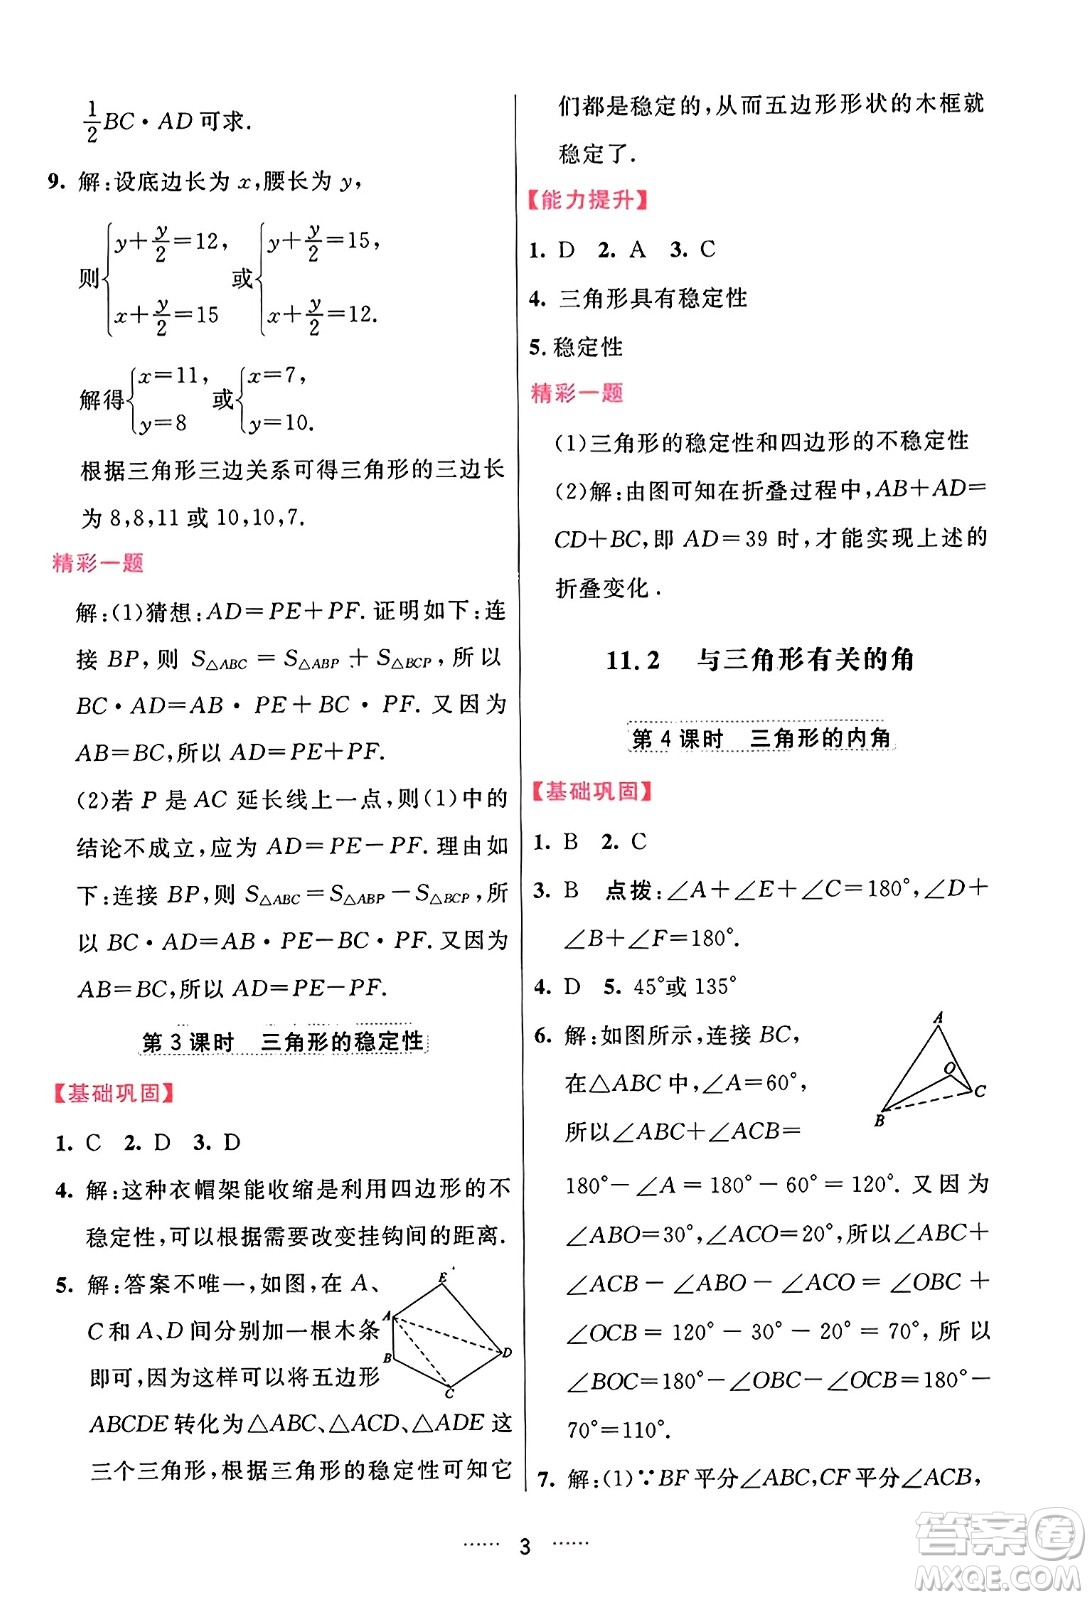 1/2 BC·AD可求.
9. 解:设底边长为 x,腰长为 y,
则{y+y/2=12, x+y/2=15 或{y+y/2=15, x+y/2=12.
解得{x=11, y=8 或{x=7, y=10.
根据三角形三边关系可得三角形的三边长
为 8,8,11 或 10,10,7.
精彩一题
解:(1)猜想:AD=PE+PF. 证明如下:连
接 BP,则 S△ABC = S△ABP + S△BCP,所以
BC·AD=AB·PE+BC·PF. 又因为
AB=BC,所以 AD=PE+PF.
(2)若 P 是 AC 延长线上一点,则(1)中的
结论不成立,应为 AD=PE-PF. 理由如
下:连接 BP,则 S△ABC=S△ABP-S△BCP,所
以 BC·AD=AB·PE-BC·PF. 又因为
AB=BC,所以 AD=PE-PF.
第 3 课时 三角形的稳定性
【基础巩固】
1. C 2. D 3. D
4. 解:这种衣帽架能收缩是利用四边形的不
稳定性,可以根据需要改变挂钩间的距离.
5. 解:答案不唯一,如图,在 A、
C 和 A、D 间分别加一根木条
即可,因为这样可以将五边形
ABCDE 转化为△ABC、△ACD、△ADE 这
三个三角形,根据三角形的稳定性可知它
E
A
B
D
C
们都是稳定的,从而五边形形状的木框就
稳定了.
【能力提升】
1. D 2. A 3. C
4. 三角形具有稳定性
5. 稳定性
精彩一题
(1)三角形的稳定性和四边形的不稳定性
(2)解:由图可知在折叠过程中,AB+AD=
CD+BC,即 AD=39 时,才能实现上述的
折叠变化.
11.2 与三角形有关的角
第 4 课时 三角形的内角
【基础巩固】
1. B 2. C
3. B 点拨:∠A+∠E+∠C=180°,∠D+
∠B+∠F=180°.
4. D 5. 45°或 135°
6. 解:如图所示,连接 BC,
在△ABC 中,∠A=60°,
所以∠ABC+∠ACB=
180°-∠A=180°-60°=120°. 又因为
∠ABO=30°,∠ACO=20°,所以∠ABC+
∠ACB-∠ABO-∠ACO=∠OBC+
∠OCB=120°-30°-20°=70°,所以
∠BOC=180°-(∠OBC+∠OCB)=180°-
70°=110°.
A
O
C
B
7. 解:(1)∵BF平分∠ABC,CF平分∠ACB,
3
答案圈
MXQE.COM